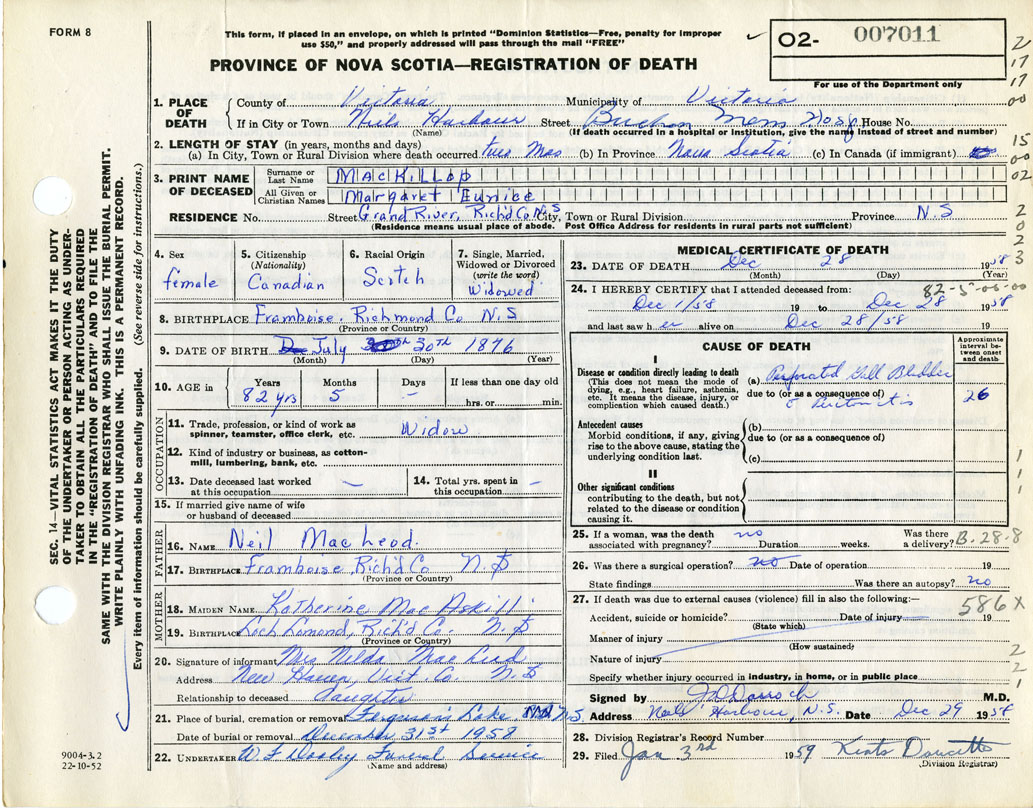 FORM 8
This form, if placed in an envelope, on which is printed "Dominion Statistics—Free, penalty for improper
use $50," and properly addressed will pass through the mail "FREE"
PROVINCE OF NOVA SCOTIA—REGISTRATION OF DEATH
02- 007011
For use of the Department only
2
17
17
00
15
00
02
2
0
2
3
SEC. 14—VITAL STATISTICS ACT MAKES IT THE DUTY
OF THE UNDERTAKER OR PERSON ACTING AS UNDER-
TAKER TO OBTAIN ALL THE PARTICULARS REQUIRED
IN THE "REGISTRATION OF DEATH" AND TO FILE THE
SAME WITH THE DIVISION REGISTRAR WHO SHALL ISSUE THE BURIAL PERMIT.
WRITE PLAINLY WITH UNFADING INK. THIS IS A PERMANENT RECORD.
Every item of information should be carefully supplied. (See reverse side for instructions.)
1. PLACE OF DEATH
County of Victoria Municipality of Victoria
If in City or Town Neils Harbour Street Buchan Mem Hosp House No.
(Name) (If death occurred in a hospital or institution, give the name instead of street and number)
2. LENGTH OF STAY (in years, months and days)
(a) In City, Town or Rural Division where death occurred two Mos (b) In Province Nova Scotia (c) In Canada (if immigrant)
3. PRINT NAME OF DECEASED
Surname or Last Name MacKillop
All Given or Christian Names Margaret Eunice
RESIDENCE No. Street Grand River, Rich'd Co. N.S City, Town or Rural Division Province N.S
(Residence means usual place of abode. Post Office Address for residents in rural parts not sufficient)
4. Sex
female
5. Citizenship
(Nationality)
Canadian
6. Racial Origin
Scotch
7. Single, Married,
Widowed or Divorced
(write the word)
Widowed
8. BIRTHPLACE Framboise. Richmond Co N.S
(Province or Country)
9. DATE OF BIRTH July 30th 1876
(Month) (Day) (Year)
10. AGE in
Years Months Days If less than one day old
82 yrs 5 — hrs. or min.
OCCUPATION
11. Trade, profession, or kind of work as
spinner, teamster, office clerk, etc. Widow
12. Kind of industry or business, as cotton-
mill, lumbering, bank, etc.
13. Date deceased last worked
at this occupation —
14. Total yrs. spent in
this occupation —
15. If married give name of wife
or husband of deceased
FATHER
16. NAME Neil MacLeod.
17. BIRTHPLACE Framboise, Rich'd Co N.S
(Province or Country)
MOTHER
18. MAIDEN NAME Katherine MacAskill
19. BIRTHPLACE Loch Lomond, Rich'd Co. N.S
(Province or Country)
20. Signature of informant Mrs Nilda MacLeod
Address New Haven, Vict. Co. N.S
Relationship to deceased Daughter
21. Place of burial, cremation or removal Ferguson's Lake N.S.
Date of burial or removal December 31st 1958
22. UNDERTAKER W. F. Funeral Service
(Name and address)
9004-3.2
22-10-52
MEDICAL CERTIFICATE OF DEATH
23. DATE OF DEATH Dec 28 1958
(Month) (Day) (Year)
82-5-05-00
24. I HEREBY CERTIFY that I attended deceased from:
Dec 1/58 19 to Dec 28 1958
and last saw her alive on Dec 28/58 19
CAUSE OF DEATH
Approximate
interval be-
tween onset
and death
I
Disease or condition directly leading to death
(This does not mean the mode of
dying, e.g., heart failure, asthenia,
etc. It means the disease, injury, or
complication which caused death.)
(a) Perforated Gall Bladder
due to (or as a consequence of) 26
c̄ Peritonitis
Antecedent causes
Morbid conditions, if any, giving
rise to the above cause, stating the
underlying condition last.
(b)
due to (or as a consequence of)
(c)
II
Other significant conditions
contributing to the death, but not
related to the disease or condition
causing it.
1
1
1
25. If a woman, was the death
associated with pregnancy? no Duration weeks. Was there
a delivery? B-28-8
26. Was there a surgical operation? no Date of operation 19
State findings Was there an autopsy? no
27. If death was due to external causes (violence) fill in also the following:—
586X
Accident, suicide or homicide? Date of injury 19
(State which)
Manner of injury
(How sustained)
Nature of injury
Specify whether injury occurred in industry, in home, or in public place
2
2
1
Signed by M.D.
Address Neils Harbour, N.S. Date Dec 29 1958
28. Division Registrar's Record Number
29. Filed Jan 3rd 1959 Doucette
(Division Registrar)